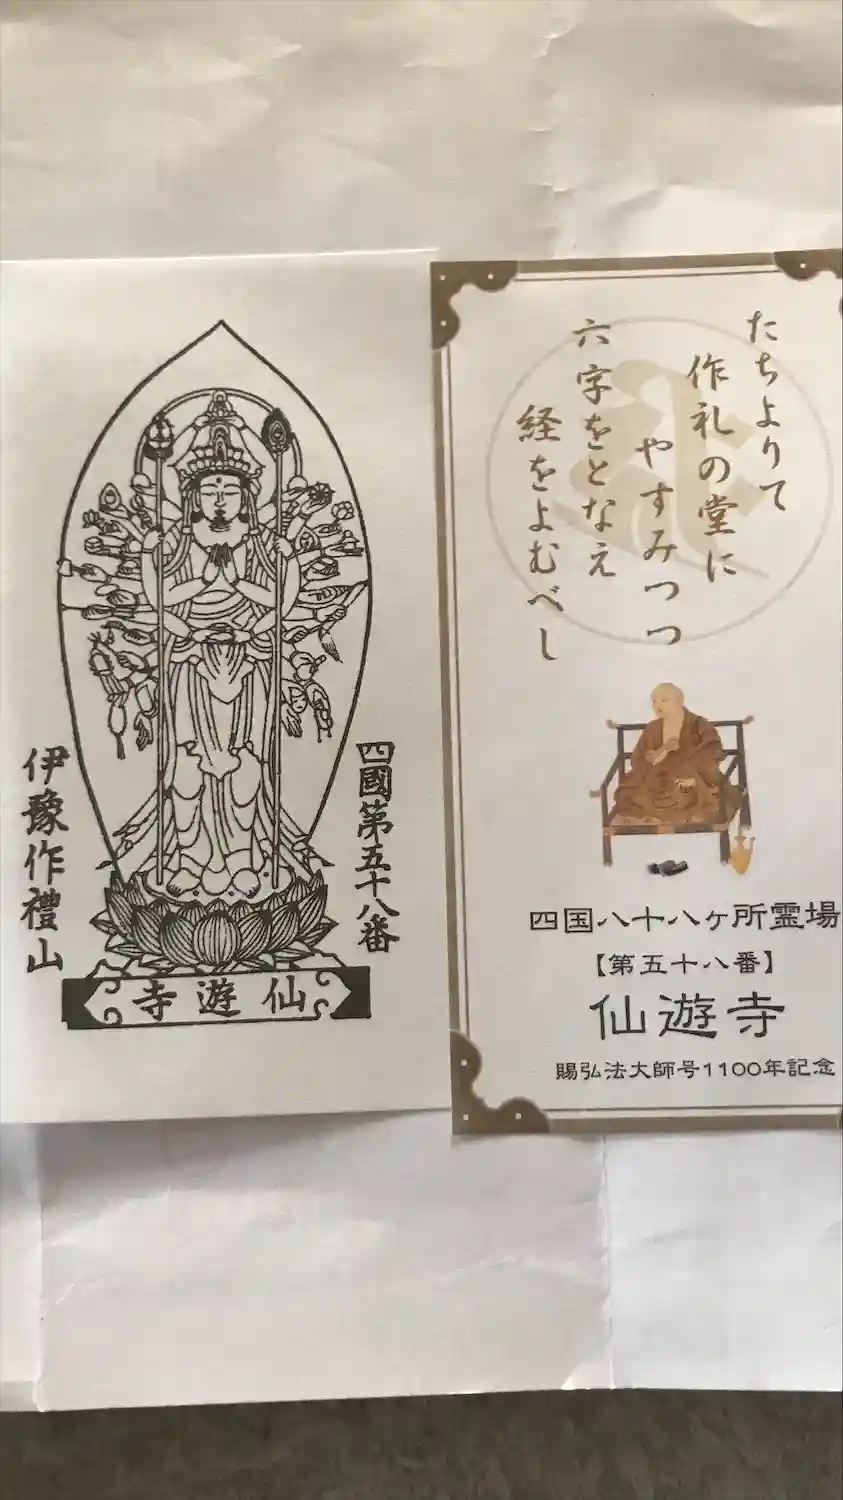 四國第五十八番
伊豫作禮山
仙遊寺
たちよりて
作礼の堂に
やすみつつ
六字をとなえ
経をよむべし
四国八十八ヶ所霊場
【第五十八番】
仙遊寺
賜弘法大師号1100年記念